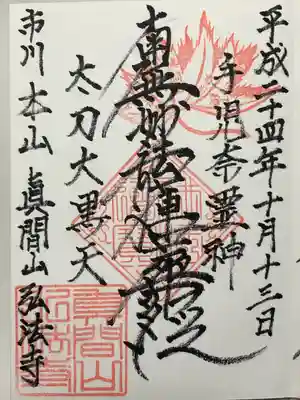 平成二十四年十月十三日
手児奈霊神
南無妙法蓮華経
太刀大黒天
市川 本山 真間山 弘法寺
真間山
弘法寺